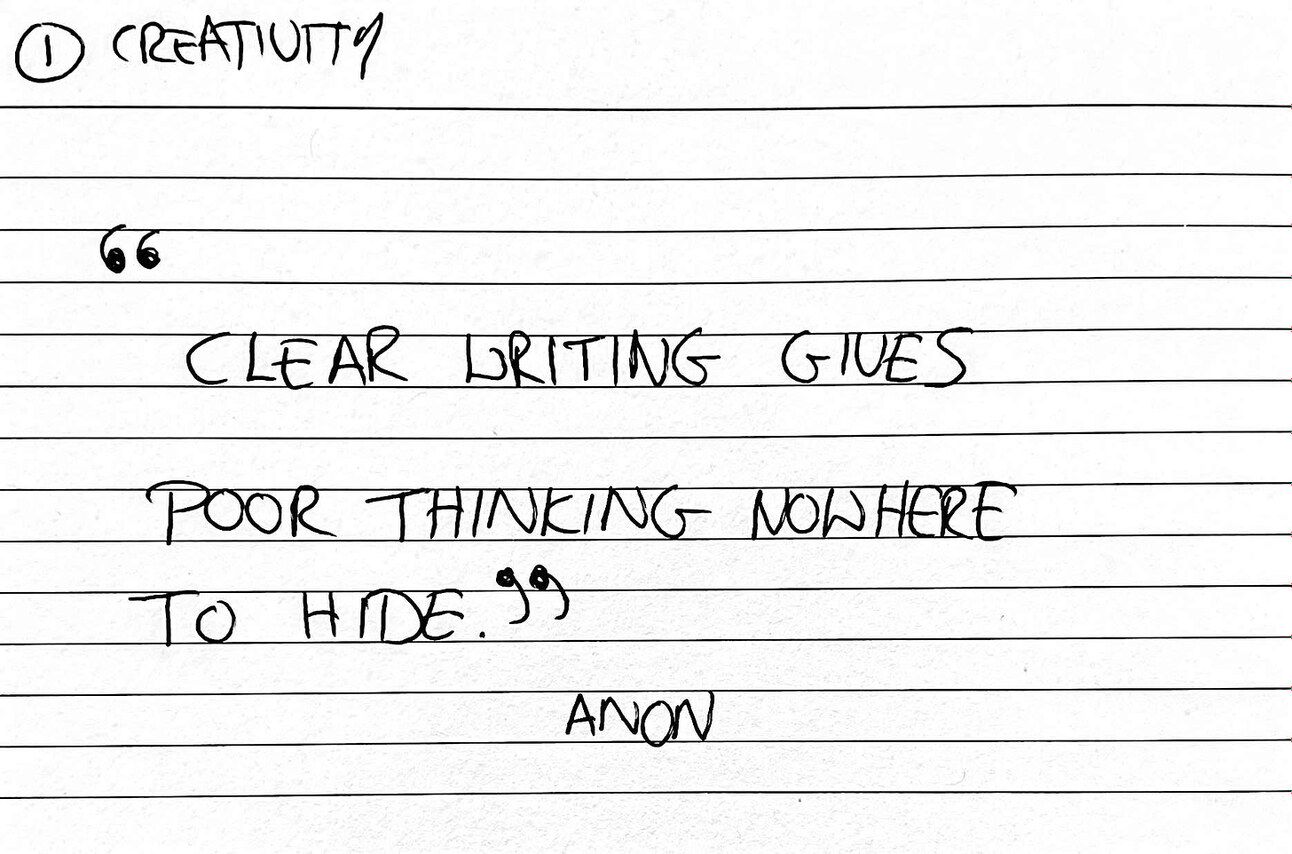 ① CREATIVITY
“
CLEAR WRITING GIVES
POOR THINKING NOWHERE
TO HIDE.”
ANON